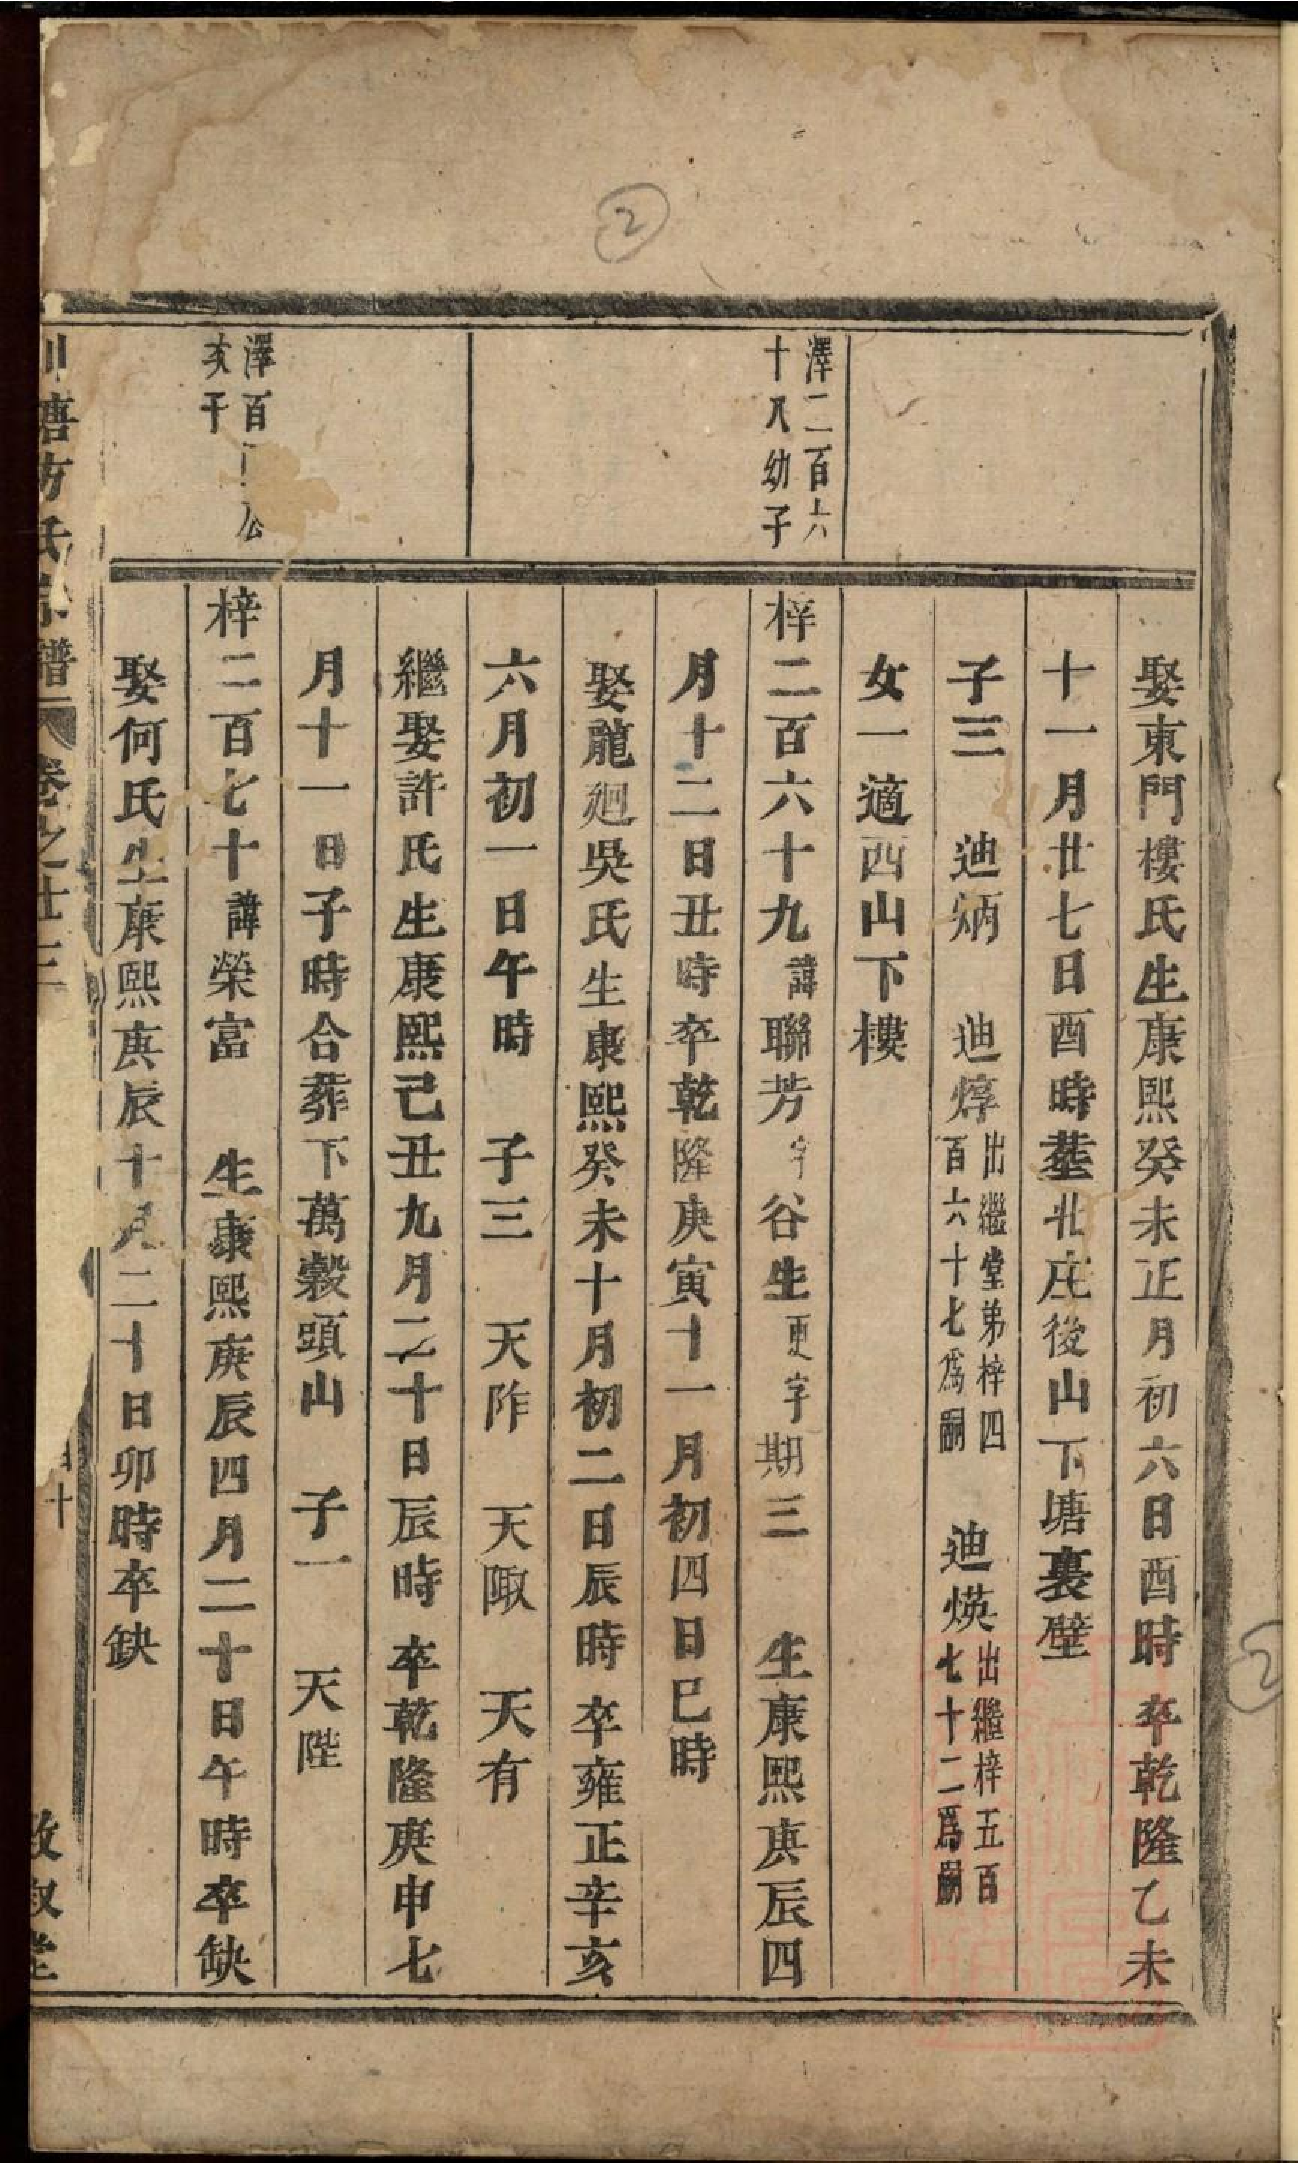 娶東門樓氏生康熙癸未正月初六日酉時卒乾隆乙未
十一月廿七日酉時塟北庄後山下塘裏壁
子三 迪炳 迪焞出繼堂弟梓四百六十七爲嗣 迪煐出繼梓五百七十二爲嗣
女一適西山下樓
澤二百六
十八幼子
梓二百六十九諱聯芳字谷生更字期三 生康熙庚辰四
月十二日丑時卒乾隆庚寅十一月初四日巳時
娶龍廻吳氏生康熙癸未十月初二日辰時卒雍正辛亥
六月初一日午時 子三 天阼 天陬 天有
繼娶許氏生康熙己丑九月二十日辰時卒乾隆庚申七
月十一日子時合葬下萬穀頭山 子一 天陛
澤百 公
亥干
梓二百七十諱榮富 生康熙庚辰四月二十日午時卒缺
娶何氏生康熙庚辰十月二十日卯時卒缺
塘方氏宗譜 卷之廿三 四十 敦叙堂
2
2